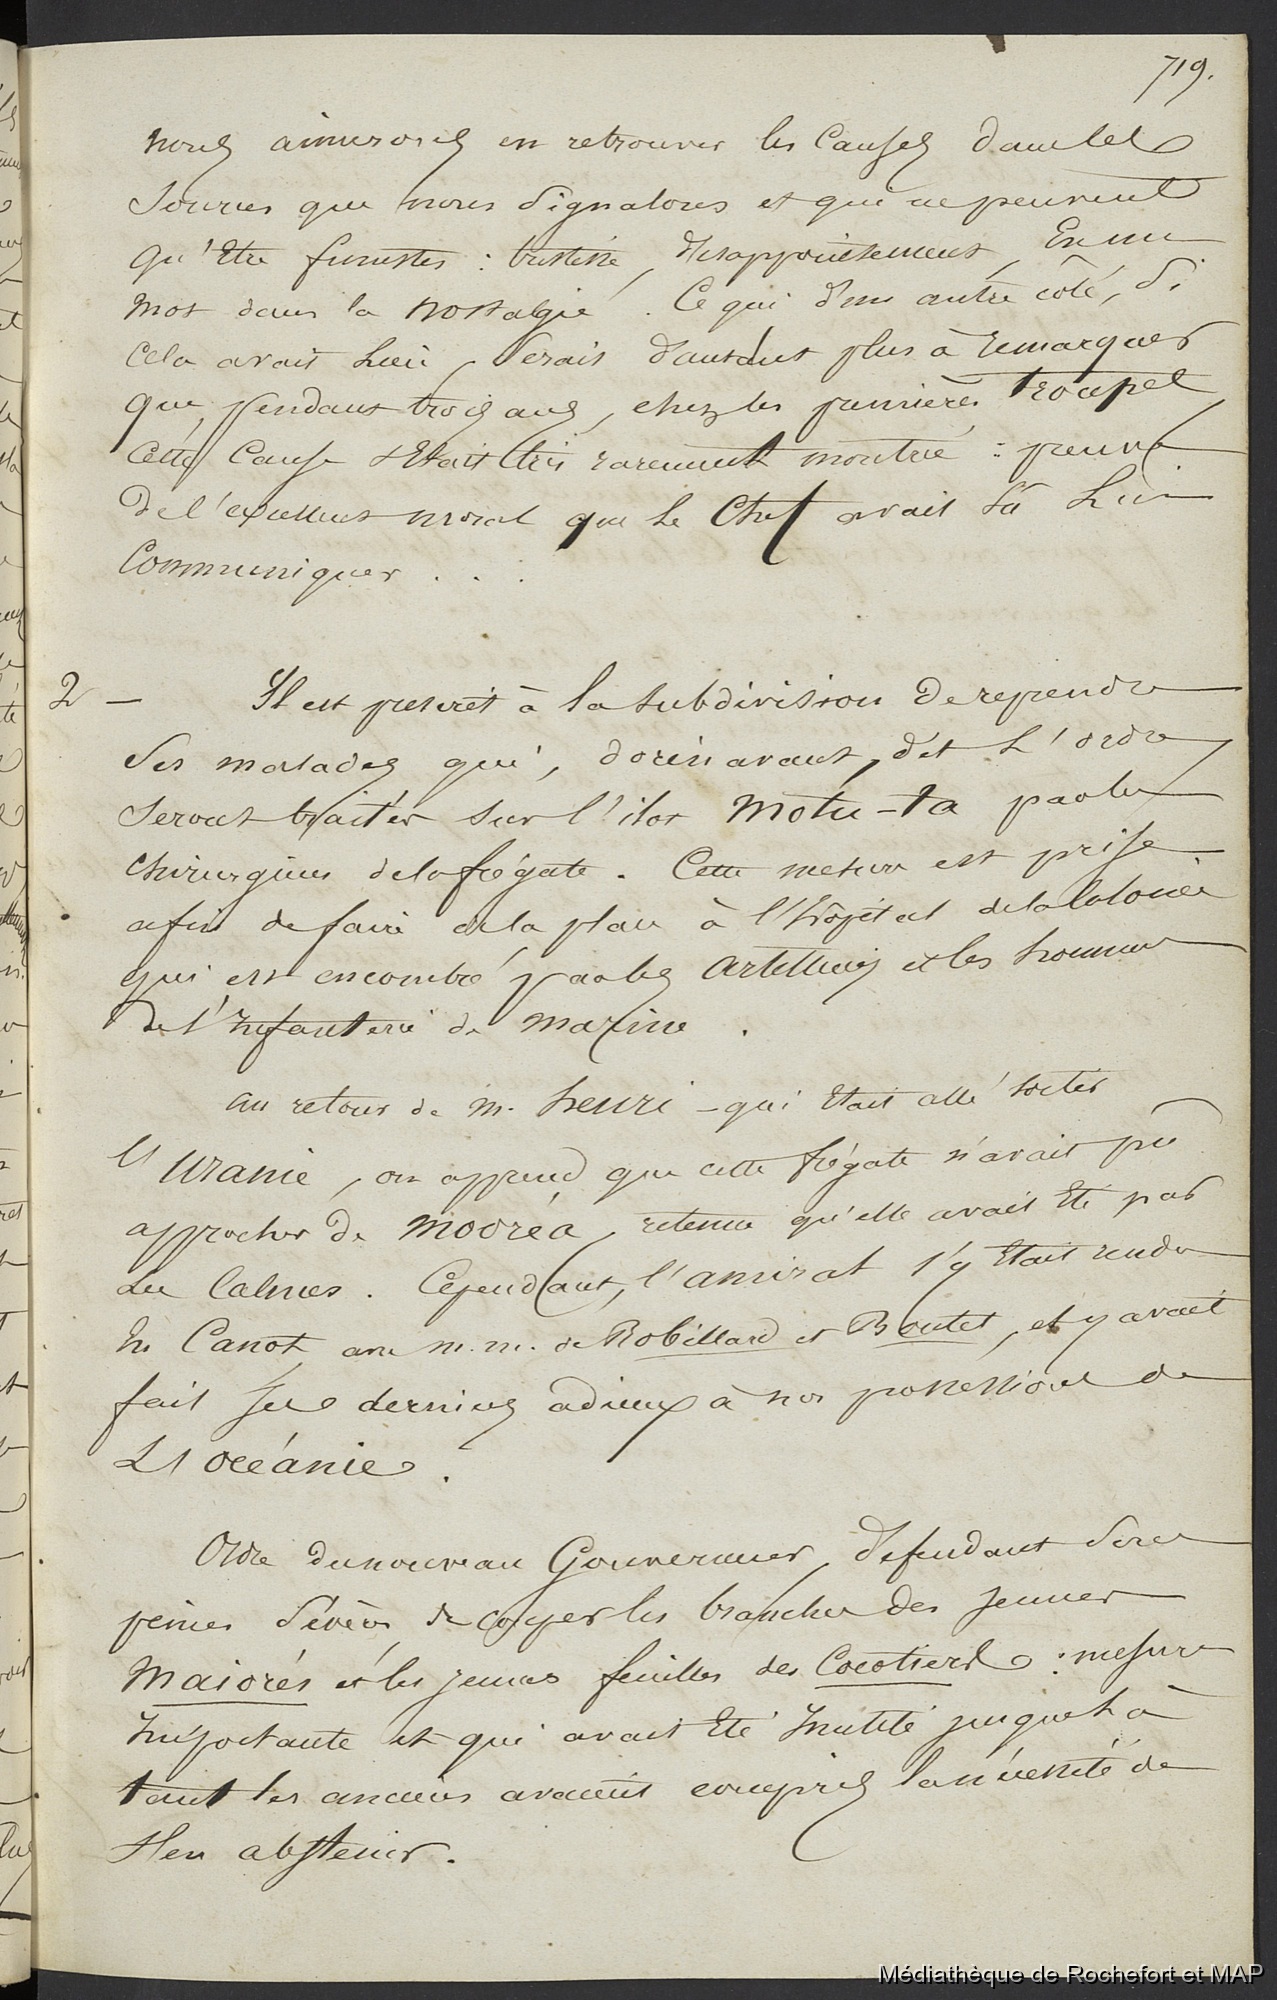 719.
nous aimerons en retrouver les Causes dans les
Sources que nous Signalons et qui ne peuvent
qu'Etre funestes : tristesse, désappointement, En un
mot dans la nostalgie. Ce qui d'un autre côté, Si
cela avait Lieu, Serait d'autant plus à remarquer
que, pendant trois ans, chez les premières troupes
cette Cause s'Etait très rarement montrée : preuve
de l'excellent moral que le Chef avait su Lui
Communiquer . . .
2 – Il est prescrit à la subdivision de reprendre
Ses malades qui, dorénavant, dit L'ordre
Seront traités sur l'ilot Motu-ta par les
chirurgiens de la frégate. Cette mesure est prise
afin de faire de la place à l'hôpital de la Colonie
qui est encombré par les artilleurs et les hommes
de l'Infanterie de marine.
au retour de m. henri – qui Etait allé sortir
l'uranie, on apprend que cette frégate n'avait pu
approcher de mooréa, retenue qu'elle avait Eté par
des Calmes. Cependant, l'amiral s'y Etait rendu
En Canot, avec m.m. de Robillard et Boutet, et y avait
fait ses derniers adieux à nos possessions de
L'océanie.
Ordre du nouveau Gouverneur, défendant Sous
peines Sévères de couper les branches des jeunes
maiorés et les jeunes feuilles des Cocotiers : mesure
Importante et qui avait Eté Inutile jusque là
tant les anciens avaient compris la nécessité de
s'en abstenir.
Médiathèque de Rochefort et MAP